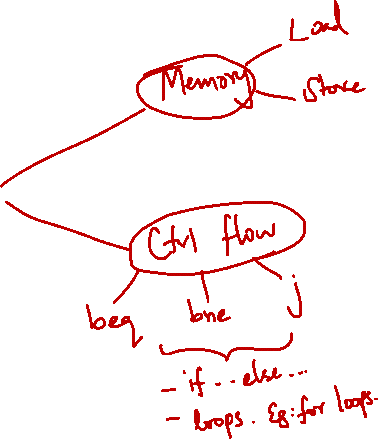 Load
Memory
Store
Ctrl flow
beq bne j
- if... else...
- loops. Eg: for loops.